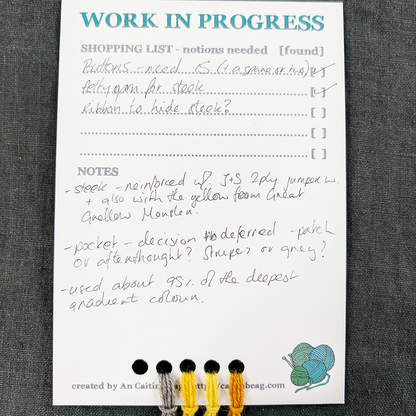 WORK IN PROGRESS
SHOPPING LIST - notions needed [found]
Buttons - need 15 (+ a spare or two) [✓]
Felty yarn for steek [✓]
Ribbon to hide steek? [ ]
[ ]
[ ]
NOTES
- steek - reinforced w/ J+S 2ply jumper w.
+ also with the yellow from Great
Monster.
- pocket - decision deferred - patch
or afterthought? Stripes or grey?
- used about 95% of the deepest
gradient colour.
created by An Caitín